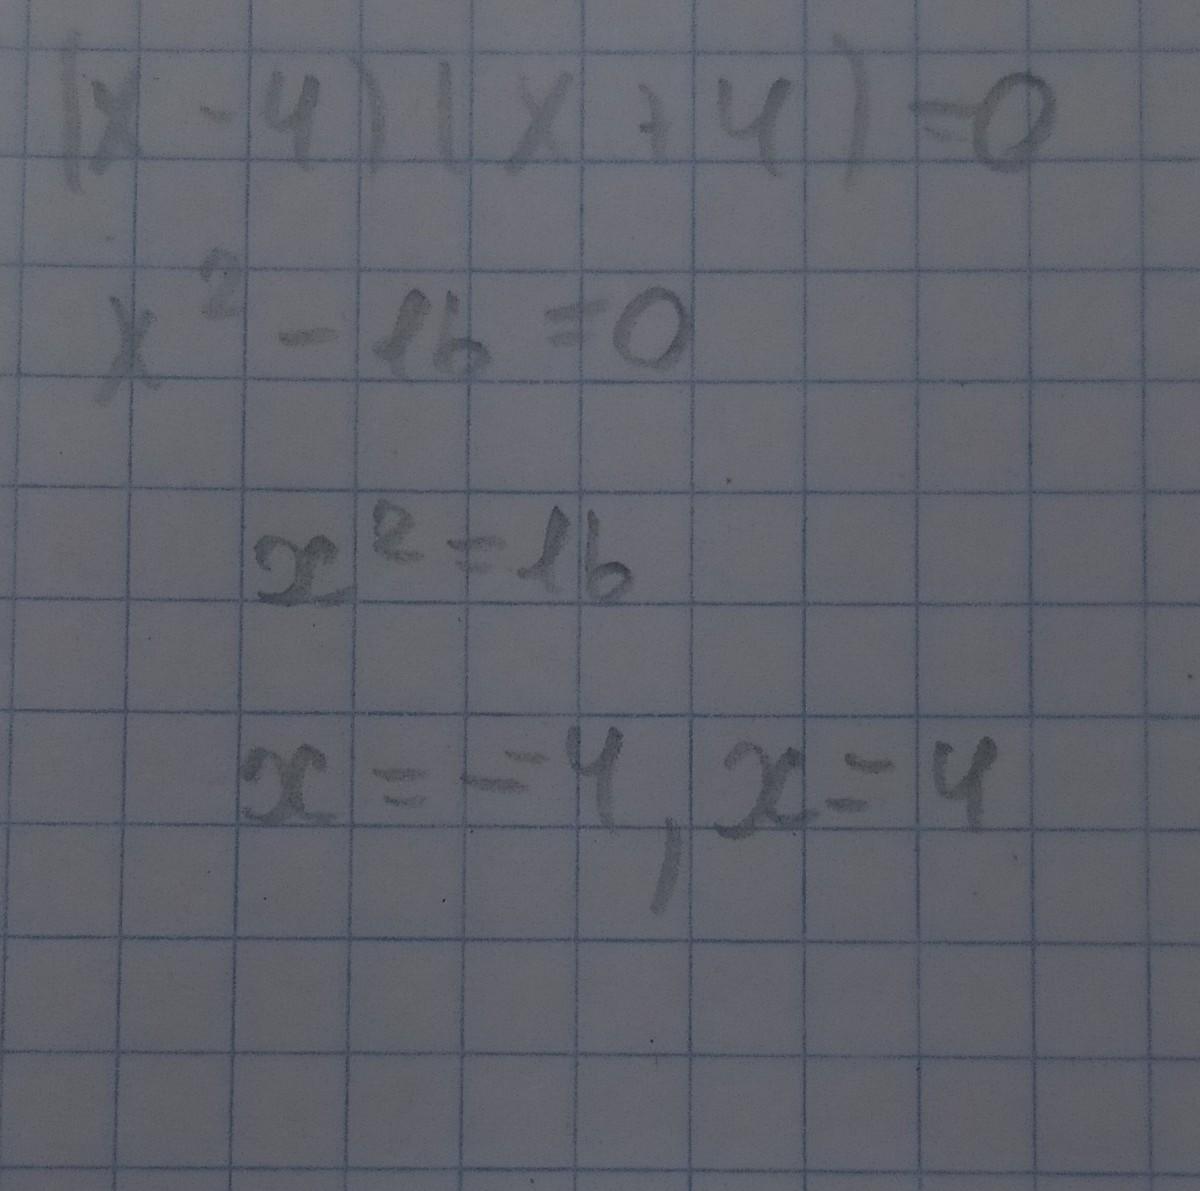 (x - 4)(x + 4) = 0
x² - 16 = 0
x² = 16
x = -4, x = 4